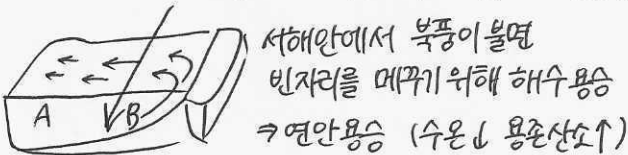 서해안에서 북풍이 불면
빈자리를 메꾸기 위해 해수 용승
⇒ 연안용승 (수온↓ 용존산소↑)
A B